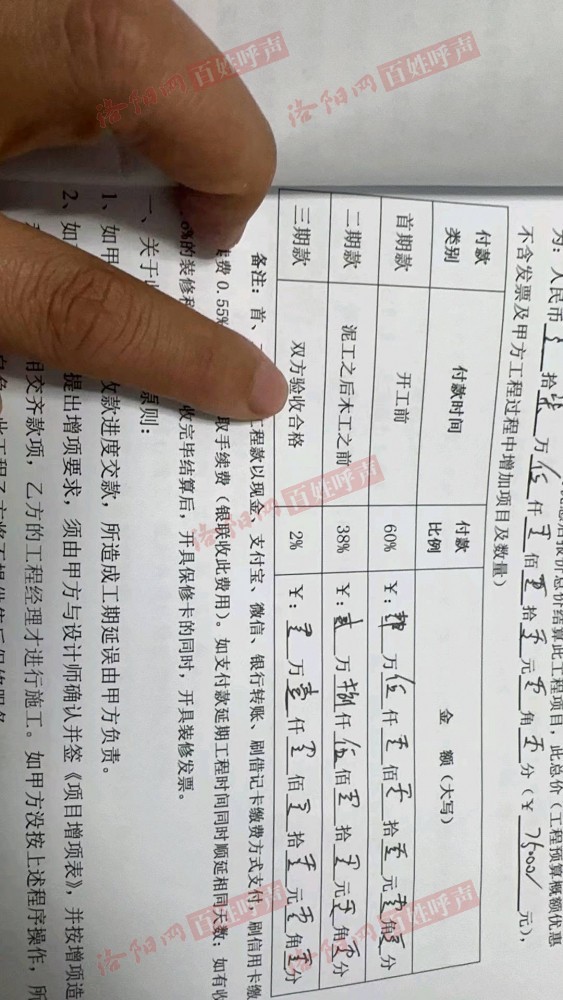 为：人民币 拾柒万伍仟零佰零拾零元零角零分（¥ 75000/ 元），
不含发票及甲方工程过程中增加项目及数量）
付款类别 付款时间 付款比例 金 额（大写）
首期款 开工前 60% ¥：肆万伍仟零佰零拾零元零角零分
二期款 泥工之后木工之前 38% ¥：贰万捌仟伍佰零拾零元零角零分
三期款 双方验收合格 2% ¥：零万壹仟零佰零拾零元零角零分
备注：首、工程款以现金、支付宝、微信、银行转账、刷借记卡缴费方式支付，刷信用卡缴
费 0.55% 取手续费（银联收此费用）。如支付款延期工程时间同时顺延相同天数；如有收
%的装修税 收完毕结算后，开具保修卡的同时，开具装修发票。
一、关于 原则：
1、如甲 款进度交款，所造成工期延误由甲方负责。
2、如 提出增项要求，须由甲方与设计师确认并签《项目增项表》，并按增项造
用交齐款项，乙方的工程经理才进行施工。如甲方没按上述程序操作，所
洛阳网 百姓呼声
洛阳网 百姓呼声
洛阳网 百姓呼声
洛阳网 百姓呼声
洛阳网 百姓呼声
洛阳网 百姓呼声